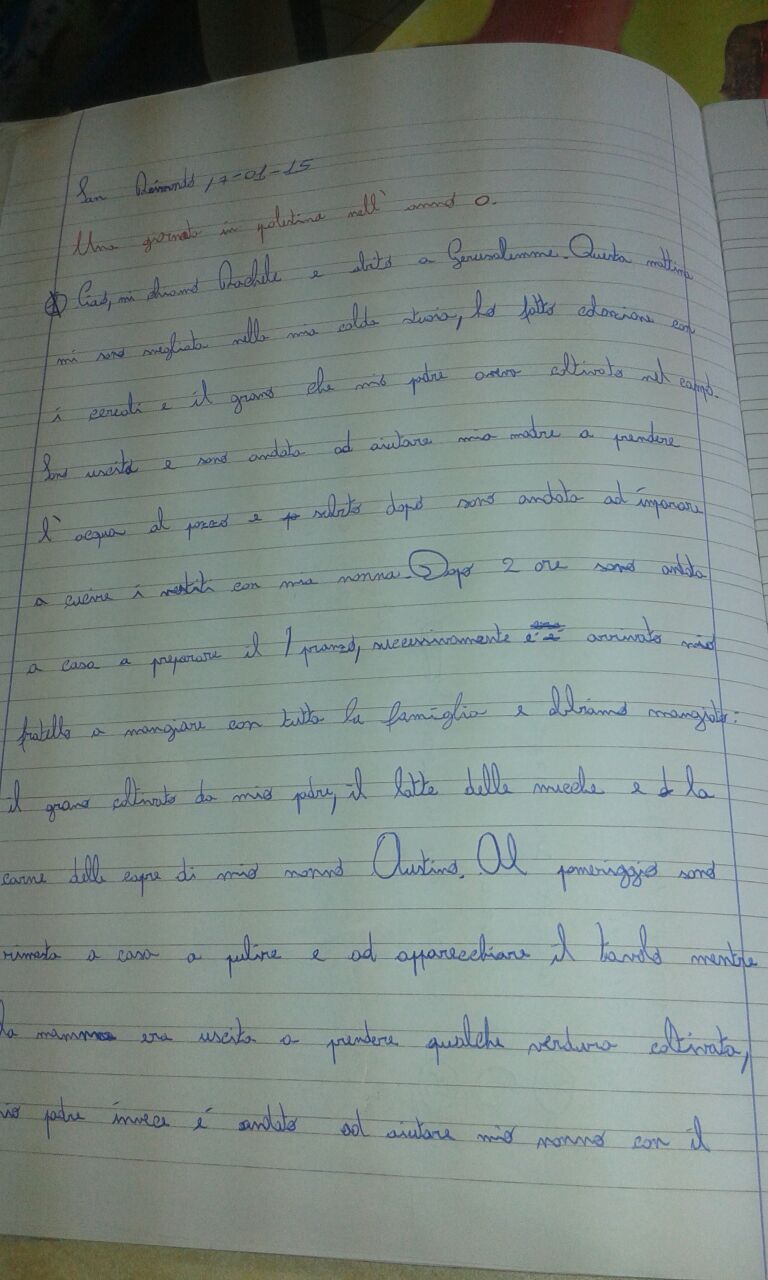 San Raimondo 17-01-15
Una giornata in palestina nell' anno 0.
Ciao, mi chiamo Rachele e abito a Gerusalemme. Questa mattina
mi sono svegliata nella mia calda stuoia, ho fatto colazione con
i cereali e il grano che mio padre aveva coltivato nel campo.
Sono uscita e sono andata ad aiutare mia madre a prendere
l' acqua al pozzo e subito dopo sono andata ad imparare
a cucire i vestiti con mia nonna. Dopo 2 ore sono andata
a casa a preparare il pranzo, successivamente è arrivato mio
fratello a mangiare con tutta la famiglia e abbiamo mangiato:
il grano coltivato da mio padre, il latte delle mucche e la
carne delle capre di mio nonno Austino. Al pomeriggio sono
rimasta a casa a pulire e ad apparecchiare il tavolo mentre
la mamma era uscita a prendere qualche verdura coltivata,
mio padre invece é andato ad aiutare mio nonno con il